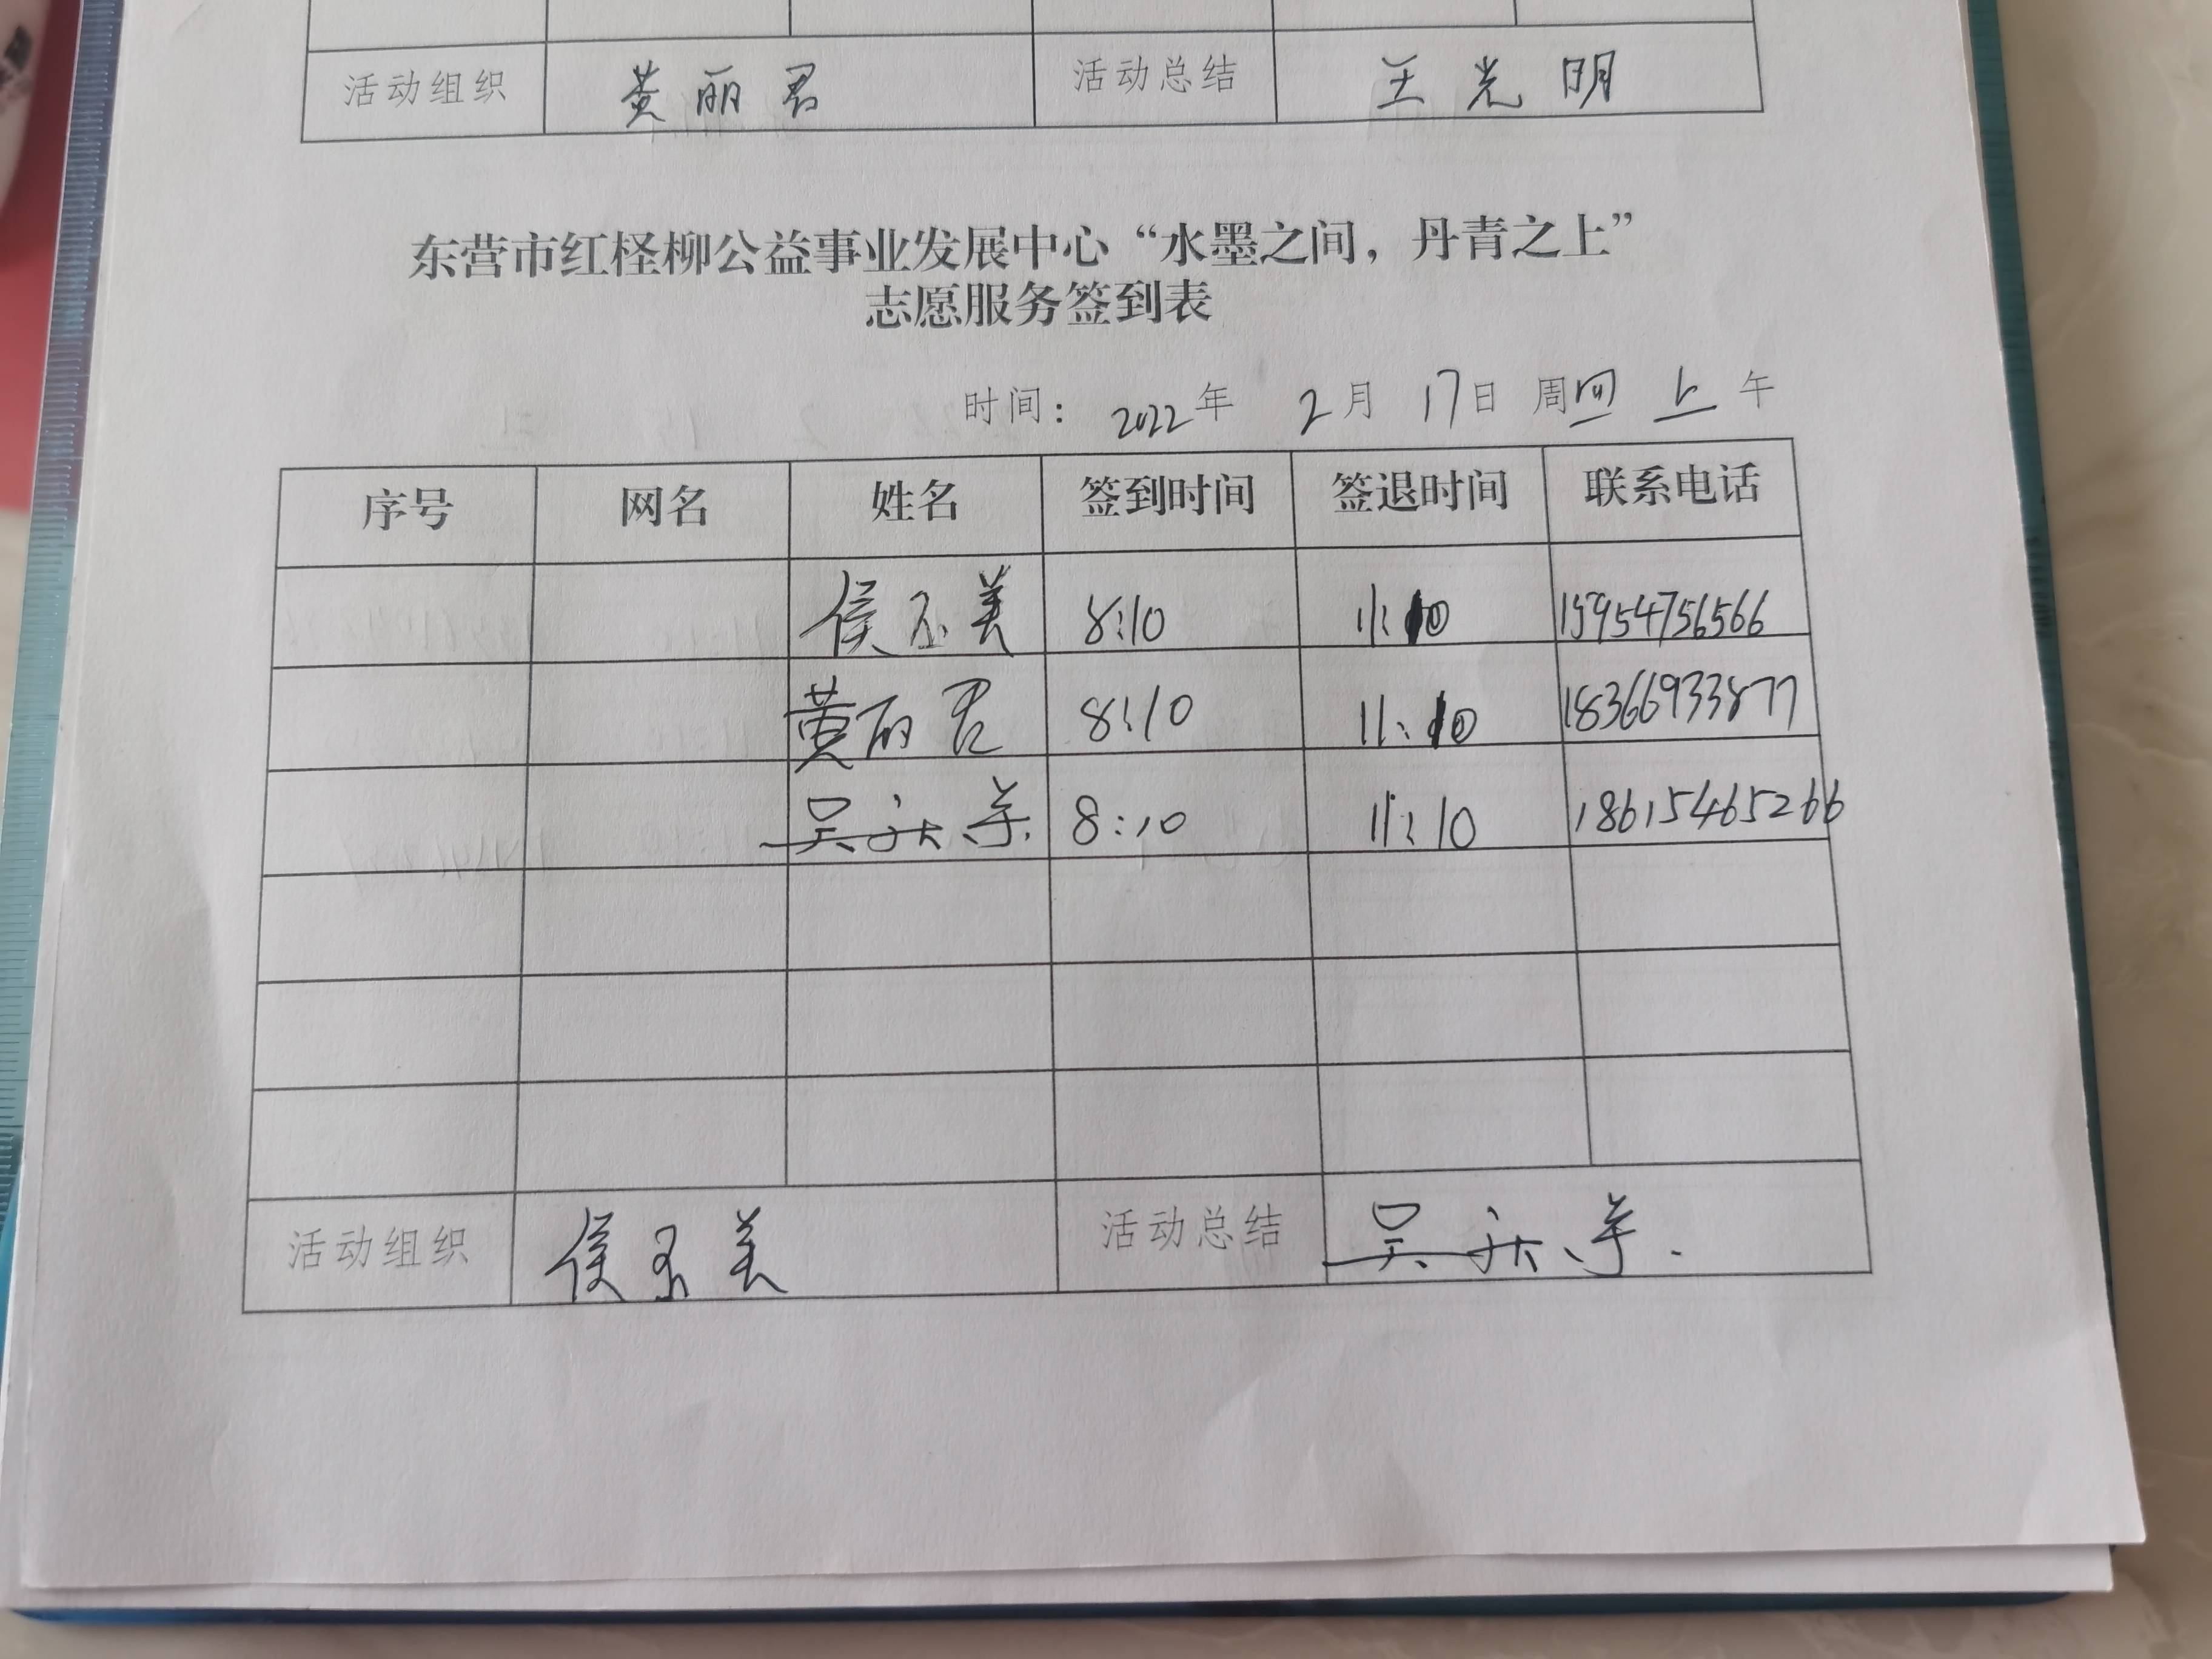 活动组织 黄丽君 活动总结 王光明
东营市红柽柳公益事业发展中心“水墨之间，丹青之上”
志愿服务签到表
时间： 2022年 2月 17日 周四 上午
序号 网名 姓名 签到时间 签退时间 联系电话
侯玉美 8:10 11:10 15954756566
黄丽君 8:10 11:10 18366933877
吴 8:10 11:10 18615465266
活动组织 侯玉美 活动总结 吴